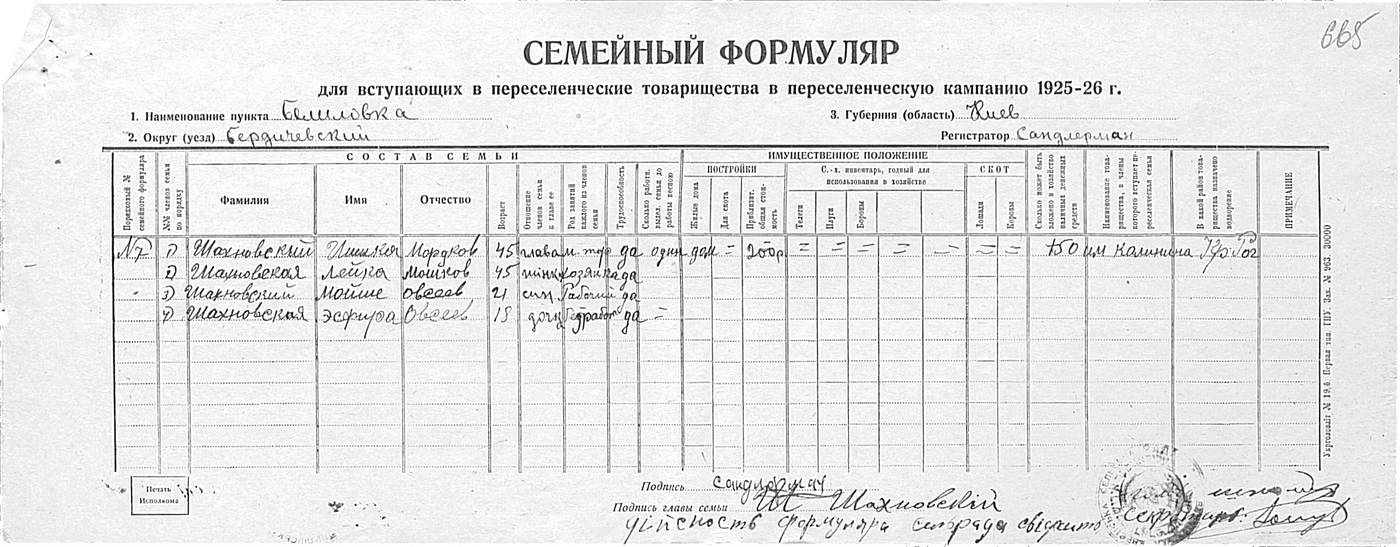 665
СЕМЕЙНЫЙ ФОРМУЛЯР
для вступающих в переселенческие товарищества в переселенческую кампанию 1925-26 г.
1. Наименование пункта Белиловка 3. Губерния (область) Киев
2. Округ (уезд) Бердичевский Регистратор Сандлерман
СОСТАВ СЕМЬИ ИМУЩЕСТВЕННОЕ ПОЛОЖЕНИЕ
ПОСТРОЙКИ С.-х. инвентарь, годный для использования в хозяйстве СКОТ
Порядковый № семейного формуляра №№ членов семьи по порядку Фамилия Имя Отчество Возраст Отношение членов семьи к главе ее Род занятий каждого из членов семьи Трудоспособность Сколько работн. выдел. семья до работы весною Жилые дома Для скота Приблизит. общая стоимость Телеги Плуги Бороны Лошади Коровы Сколько может быть вложено в хозяйство наличных денежных средств Наименование товарищества, в члены которого вступает переселенческая семья В какой район товарищества назначено водворение ПРИМЕЧАНИЕ
1) Шахновский Мордков 45 глава да один дом = 200р = = = = = = = 150 им Калинина Кр. Рог
2) Шахновская Лейка Мошков 45 жінка хозяйка да
3) Шахновский Мойше Овсеев 21 син Рабочий да
4) Шахновская Эсфира Овсеев 18 дочка Безработн да =
Укрголовліт № 19,6. Первая тип. ГПУ. Зак. № 963. 30000
Печать Исполкома
Подпись Сандлерман
Подпись главы семьи Ш Шахновский
Дійсность формуляра сельрада свідчить
Секретарь: